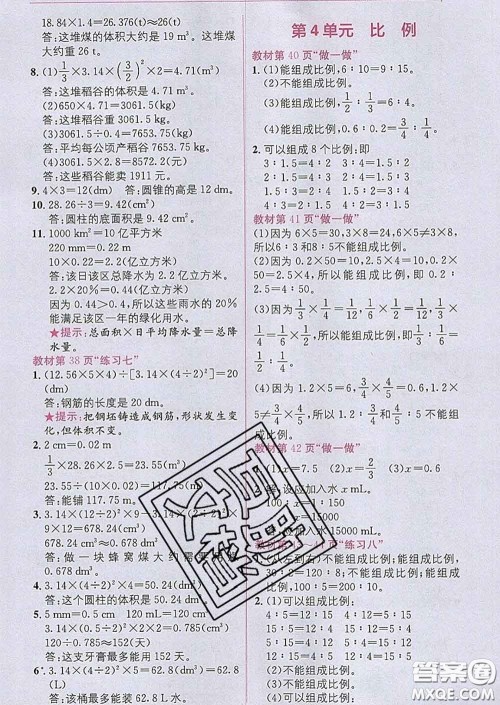 18.84×1.4=26.376(t)≈26(t)
答:这堆煤的体积大约是 19 m³。这堆煤
大约重 26 t。
8. (1)1/3×3.14×(3/2)²×2=4.71(m³)
答:这堆稻谷的体积是 4.71 m³。
(2)650×4.71=3061.5(kg)
答:这堆稻谷重 3061.5 kg。
(3)3061.5÷0.4=7653.75(kg)
答:平均每公顷产稻谷 7653.75 kg。
(4)3061.5×2.8=8572.2(元)
答:这些稻谷能卖 1911 元。
9. 4×3=12(dm) 答:圆锥的高是 12 dm。
10. 28.26÷3=9.42(cm²)
答:圆柱的底面积是 9.42 cm²。
11. 1000 km²=10 亿平方米
220 mm=0.22 m
10×0.22=2.2(亿立方米)
答:该日该区总降水为 2.2 亿立方米。
2.2×20%=0.44(亿立方米)
因为 0.44>0.4,所以这些雨水的 20%
能满足该区一年的绿化用水。
★提示:总面积×日平均降水量=总降
水量。
教材第 38 页“练习七”
1. (12.56×5×4)÷[3.14×(4÷2)²]=20
(dm)
答:钢筋的长度是 20 dm。
★提示:把钢坯铸造成钢筋,形状发生变
化,但体积不变。
2. 2 cm=0.02 m
1/3×28.26×2.5=23.55(m³)
23.55÷(10×0.02)=117.75(m)
答:能铺 117.75 m。
3. 3.14×(12÷2)²×9-3.14×(2÷2)²
×9×12=678.24(cm³)
678.24 cm³≈0.7 dm³
答:做一块蜂窝煤大约需要用
4. 3.14×(4÷2)²×4=50.24(dm³)
答:这个圆柱的体积是 50.24 dm³。
5. 0.5 cm=5 mm 120 mL=120 cm³
答:这支牙膏最多能用 152 天。
6*. 3.14×(4÷2)²×5=62.8(dm³)=62.8
(L)
答:该桶最多能装 62.8 L 水。
第 4 单元 比 例
教材第 40 页“做一做”
1. (1)能组成比例,6∶10=9∶15。
(2)不能组成比例。
(3)能组成比例,1/2∶1/3=6∶4。
(4)能组成比例,0.6∶0.2=
2. 可以组成 8 个比例:即
3∶1.5=4∶2 3∶4=1.5∶2
2∶1.5=4∶3 2∶4=1.5∶3
1.5∶3=2∶4 1.5∶2=3∶4
4∶3=2∶1.5 4∶2=3∶1.5
教材第 41 页“做一做”
(1)因为 6×5=30,3×8=24,6×5≠3×8,
所以 6∶3和8∶5不能组成比例。
(2)因为 0.2×50=10,2.5×4=10,0.2×
50=2.5×4,所以能组成比例,即 0.2∶
2.5=4∶50。
教材第 42 页“做一做”
(1)x=7.5 (2)x=2/3 (3)x=0.6
解:设应加入水 x mL。
x=15000
答:应加入水 15000 mL。
页“练习八”
(从左到右)能组成比例;能组成比例;能
30∶2=120∶8;不能组成比例。
2. (1)可以组成比例;
4∶5=12∶15 4∶12=5∶15
5∶4=15∶12 5∶15=4∶12
12∶4=15∶5 12∶15=4∶5
15∶5=12∶4 15∶12=5∶4
(2)不能组成比例;
(3)不能组成比例;
(4)可以组成比例:
答案圈
MXQE.COM